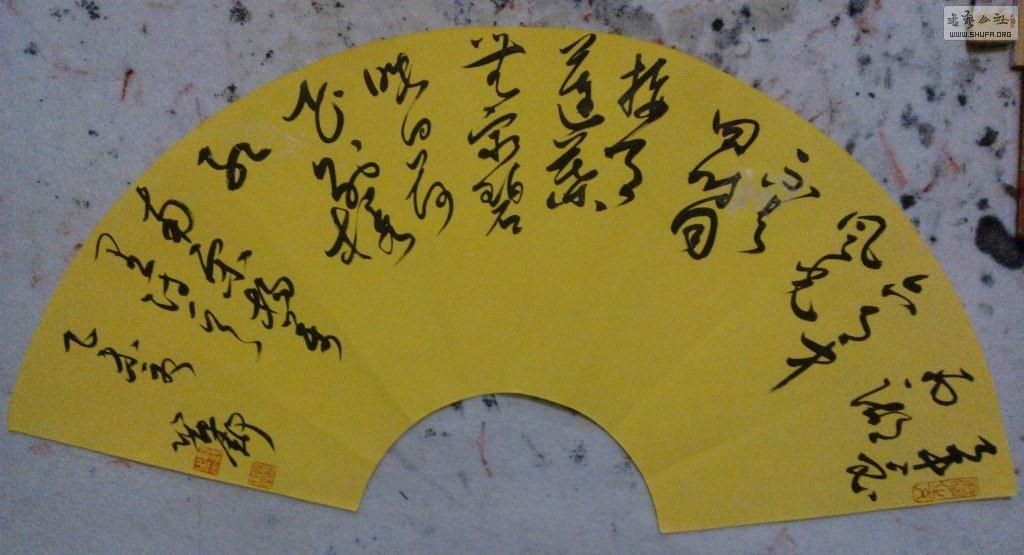 毕竟
西湖
六月中
风光
不与
四时同
接天
莲叶
无穷碧
映日荷
花别样
红
南宋杨万
里诗
乙未夏
书艺公社
WWW.SHUFA.ORG